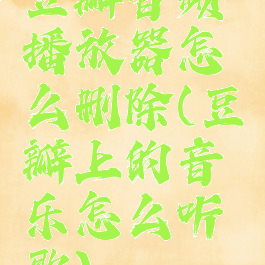 豆瓣音频
播放器怎
么删除(豆
瓣上的音
乐怎么听
歌)